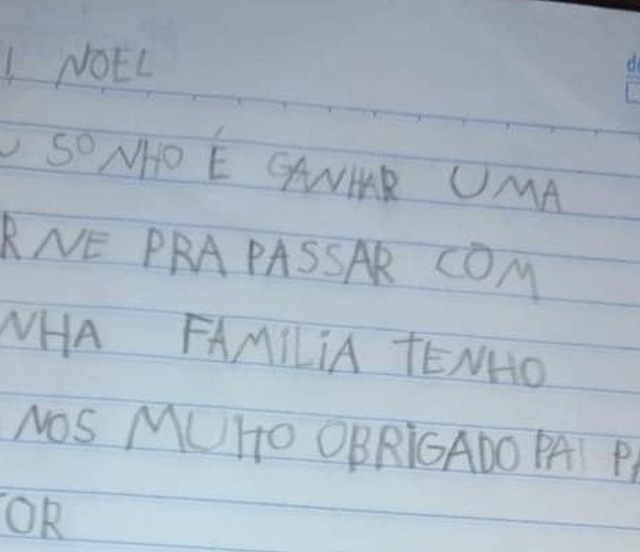 I NOEL
U SONHO É GANHAR UMA
RNE PRA PASSAR COM
NHA FAMILIA TENHO
NOS MUITO OBRIGADO PAI PA
TOR